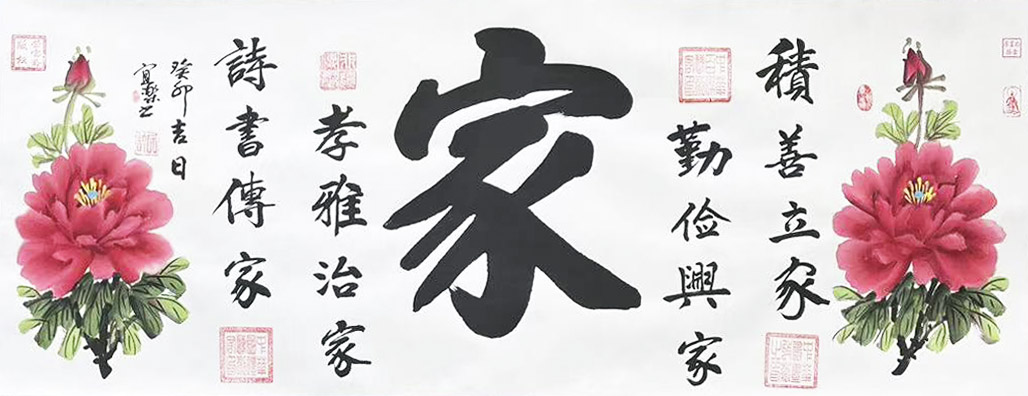 積善立家
勤俭興家
家
孝雅治家
詩書傳家
癸卯吉日